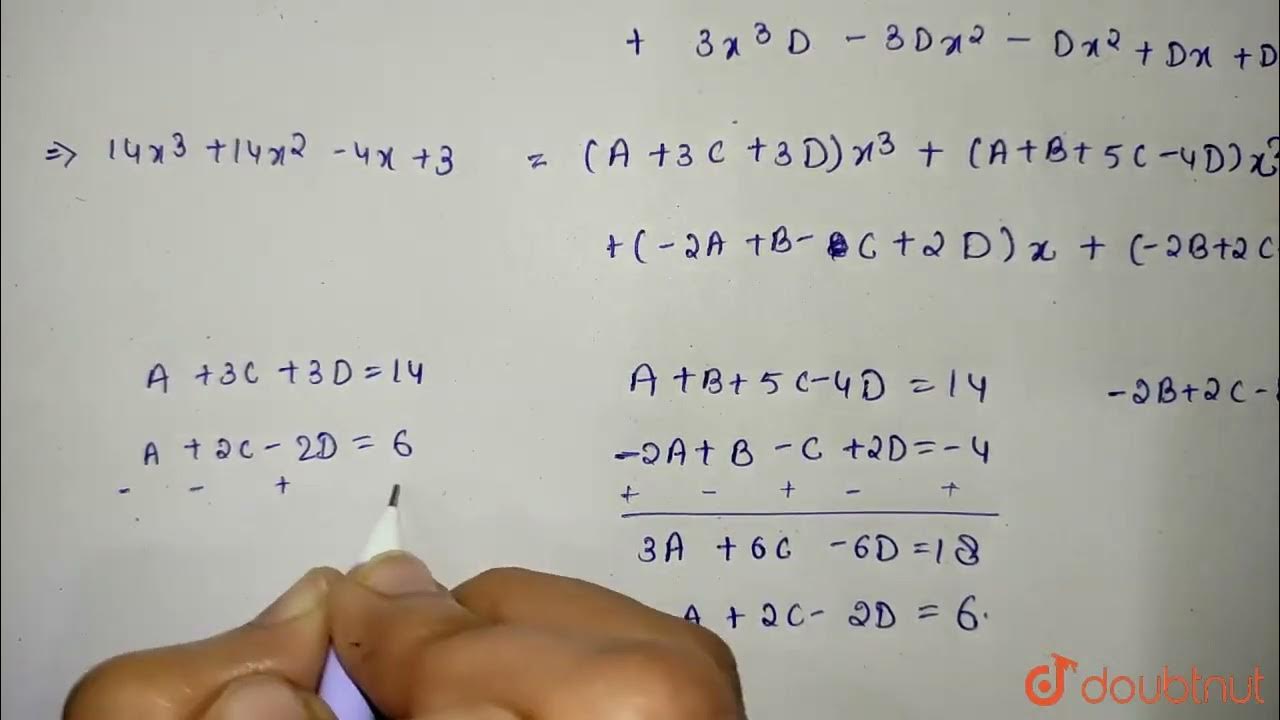 + 3x³D - 3Dx² - Dx² + Dx + D
⇒ 14x³ + 14x² - 4x + 3 = (A + 3C + 3D)x³ + (A + B + 5C - 4D)x²
+ (-2A + B - C + 2D)x + (-2B + 2C
A + 3C + 3D = 14
A + 2C - 2D = 6
- - +
A + B + 5C - 4D = 14
-2A + B - C + 2D = -4
+ - + - +
3A + 6C - 6D = 18
A + 2C - 2D = 6.
-2B + 2C -
doubtnut